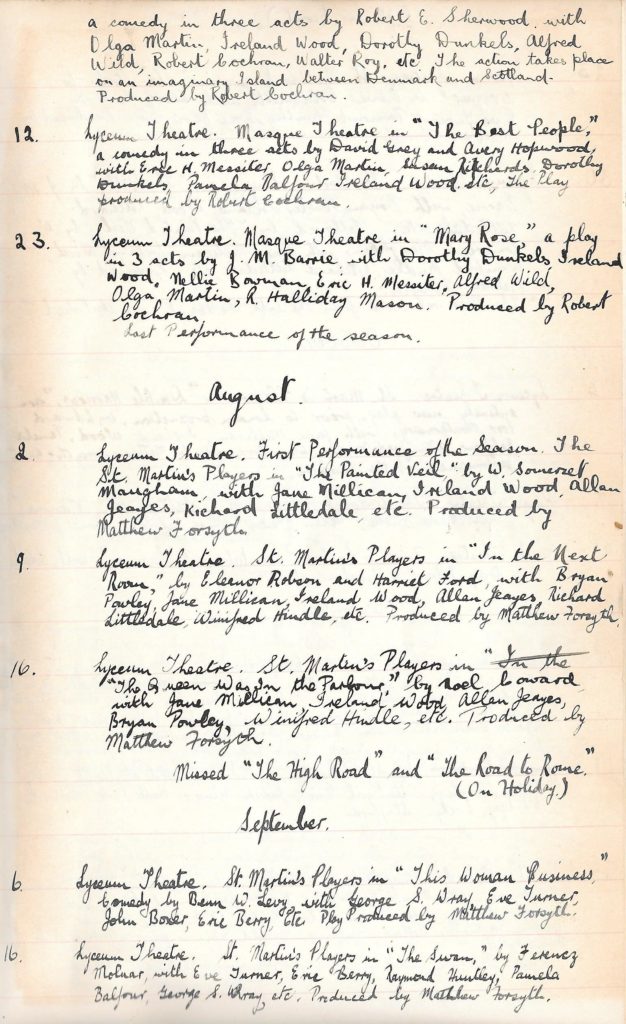 a comedy in three acts by Robert E. Sherwood, with
Olga Martin, Ireland Wood, Dorothy Dunkels, Alfred
Wild, Robert Cochran, Walter Roy, etc. The action takes place
on an imaginary Island between Denmark and Scotland.
Produced by Robert Cochran.
12. Lyceum Theatre. Masque Theatre in "The Best People,"
a comedy in three acts by David Grey and Avery Hopwood,
with Eric H. Messiter, Olga Martin, Susan Richards, Dorothy
Dunkels, Pamela Balfour, Ireland Wood, etc. The Play
produced by Robert Cochran.
23. Lyceum Theatre. Masque Theatre in "Mary Rose," a play
in 3 acts by J. M. Barrie with Dorothy Dunkels, Ireland
Wood, Nellie Bowman, Eric H. Messiter, Alfred Wild,
Olga Martin, R. Halliday Mason. Produced by Robert
Cochran.
Last Performance of the season.
August.
2. Lyceum Theatre. First Performance of the Season. The
St. Martin's Players in "The Painted Veil," by W. Somerset
Maugham, with Jane Millican, Ireland Wood, Allan
Jeayes, Richard Littledale, etc. Produced by
Matthew Forsyth.
9. Lyceum Theatre. St. Martin's Players in "In the Next
Room," by Eleanor Robson and Harriet Ford, with Bryan
Powley, Jane Millican, Ireland Wood, Allan Jeayes, Richard
Littledale, Winifred Hindle, etc. Produced by Matthew Forsyth.
16. Lyceum Theatre. St. Martin's Players in "In the
"The Queen Was in the Parlour," by Noel Coward
with Jane Millican, Ireland Wood, Allan Jeayes,
Bryan Powley, Winifred Hindle, etc. Produced by
Matthew Forsyth.
Missed "The High Road" and "The Road to Rome."
(On Holiday.)
September.
6. Lyceum Theatre. St. Martin's Players in "This Woman Business,"
Comedy by Benn W. Levy, with George S. Wray, Eve Turner,
John Boxer, Eric Berry, Etc. Play Produced by Matthew Forsyth.
16. Lyceum Theatre. St. Martin's Players in "The Swan," by Ferencz
Molnar, with Eve Turner, Eric Berry, Raymond Huntley, Pamela
Balfour, George S. Wray, etc. Produced by Matthew Forsyth.